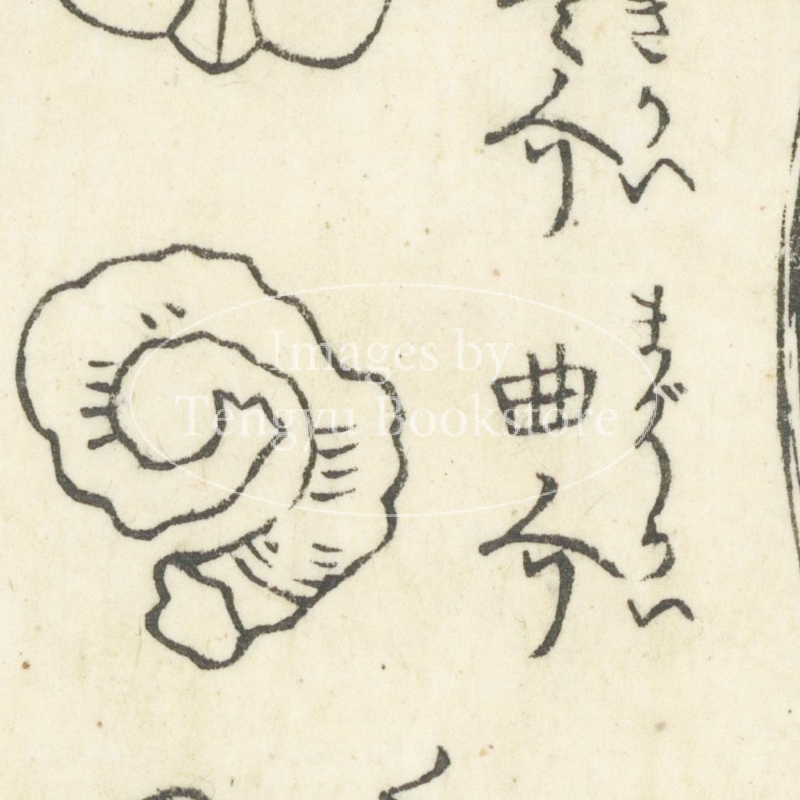 きかい
介
まがりかい
曲介
Images by
Tengyu Bookstore